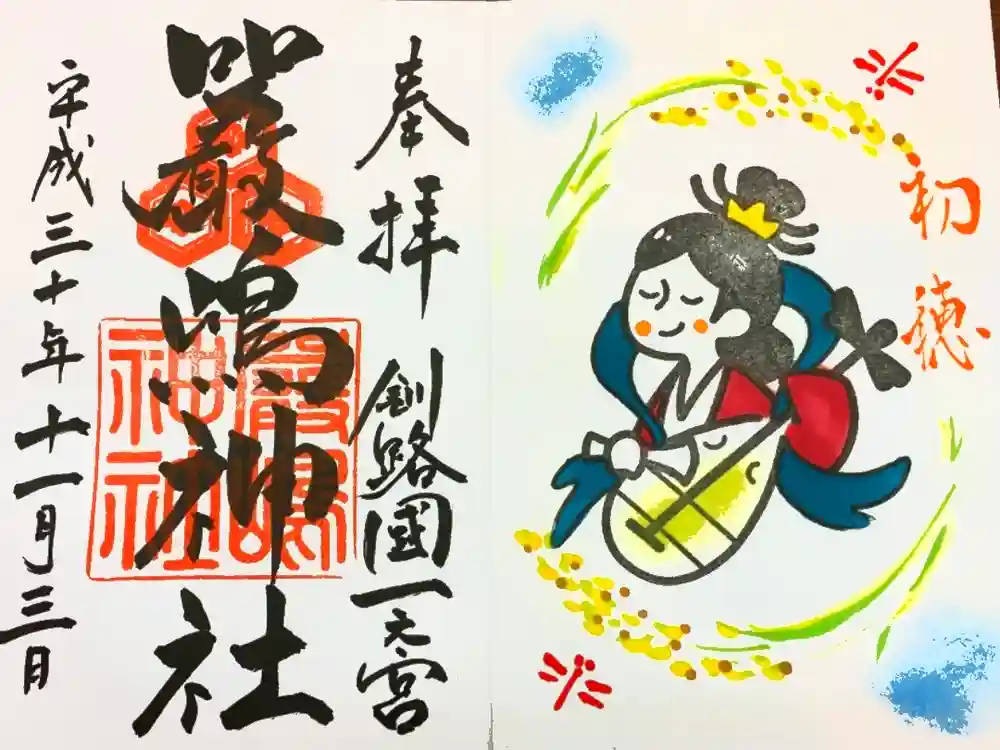 初穂
奉拝
釧路國一之宮
嚴嶋神社
嚴嶋神社
平成三十年十一月三日